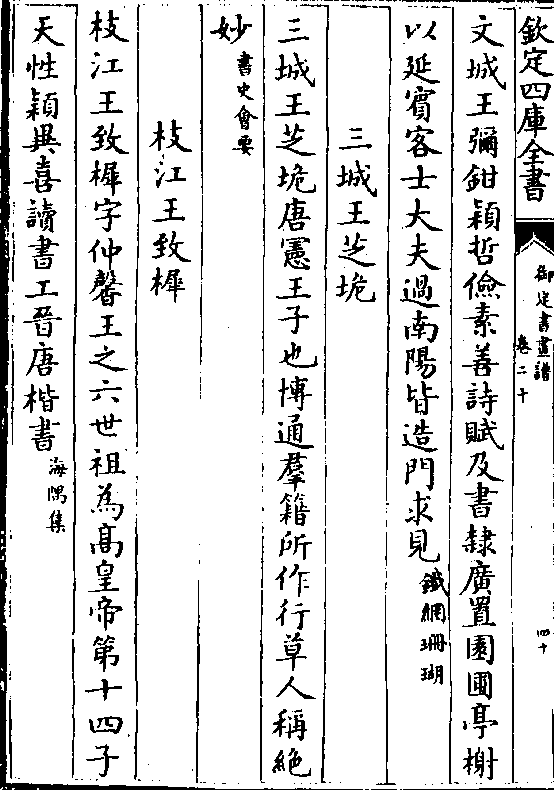 欽定四庫全書
御定書畫譜
卷二十
四十
文城王彌鉗穎哲儉素善詩賦及書隸廣置園圃亭榭
以延賓客士大夫過南陽皆造門求見鐵網珊瑚
三城王芝垝
三城王芝垝唐憲王子也博通羣籍所作行草人稱絶
妙書史會要
枝江王致樨
枝江王致樨字仲馨王之六世祖為髙皇帝第十四子
天性穎異喜讀書工晉唐楷書海隅集